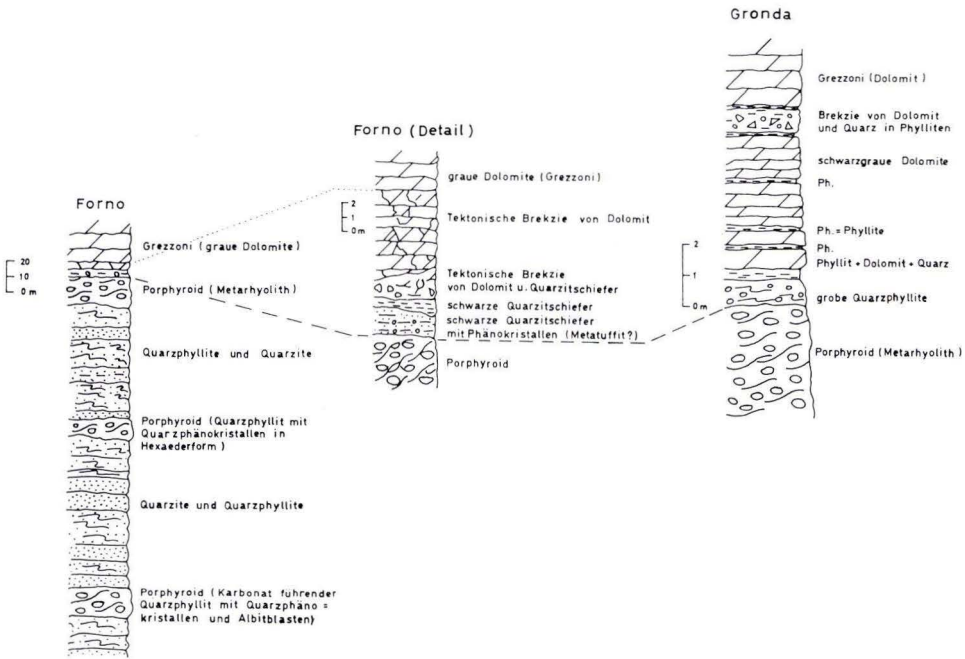 Forno
20
10
0 m
Grezzoni (graue Dolomite)
Porphyroid (Metarhyolith)
Quarzphyllite und Quarzite
Porphyroid (Quarzphyllit mit
Quarzphänokristallen in
Hexaederform)
Quarzite und Quarzphyllite
Porphyroid (Karbonat führender
Quarzphyllit mit Quarzphäno=
kristallen und Albitblasten)
Forno (Detail)
2
1
0m
graue Dolomite (Grezzoni)
Tektonische Brekzie von Dolomit
Tektonische Brekzie
von Dolomit u. Quarzitschiefer
schwarze Quarzitschiefer
schwarze Quarzitschiefer
mit Phänokristallen (Metatuffit?)
Porphyroid
Gronda
2
1
0m
Grezzoni (Dolomit)
Brekzie von Dolomit
und Quarz in Phylliten
schwarzgraue Dolomite
Ph.
Ph. = Phyllite
Ph.
Phyllit + Dolomit + Quarz
grobe Quarzphyllite
Porphyroid (Metarhyolith)